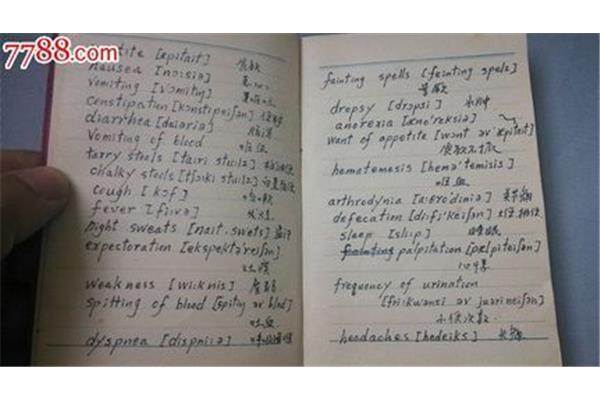 7788.com
tite [æpitait] 食欲
nausea [nɔ:siə] 恶心
vomiting [vɔmitiŋ] 呕吐
constipation [kɔnstipeiʃən] 便秘
diarrhea [daiəriə] 腹泻
Vomiting of blood 呕血
tarry stools [tairi stu:lz]
chalky stools [tʃɔ:ki stu:lz]
cough [kɔf] 咳嗽
fever [fi:və] 发热
night sweats [nait swets] 盗汗
expectoration [ekspektəreiʃən]
吐痰
weakness [wi:knis] 虚弱
spitting of blood [spitiŋ əv blʌd]
吐血
dyspnea [dispni:ə] 呼吸困难
fainting spells [feintiŋ spelz]
昏厥
dropsy [drɔpsi] 水肿
anorexia [ænə'reksiə]
want of appetite [wɔnt əv 'æpitait]
食欲不振
hematemesis [hemə'temisis]
呕血
arthrodynia [a:θrə'diniə] 关节痛
defecation [di:fi'keiʃən] 大便
sleep [sli:p] 睡眠
fainting palpitation [pælpiteiʃən]
心悸
frequency of urination
[fri:kwənsi əv juərineiʃən]
小便次数
headaches [hedeiks] 头痛